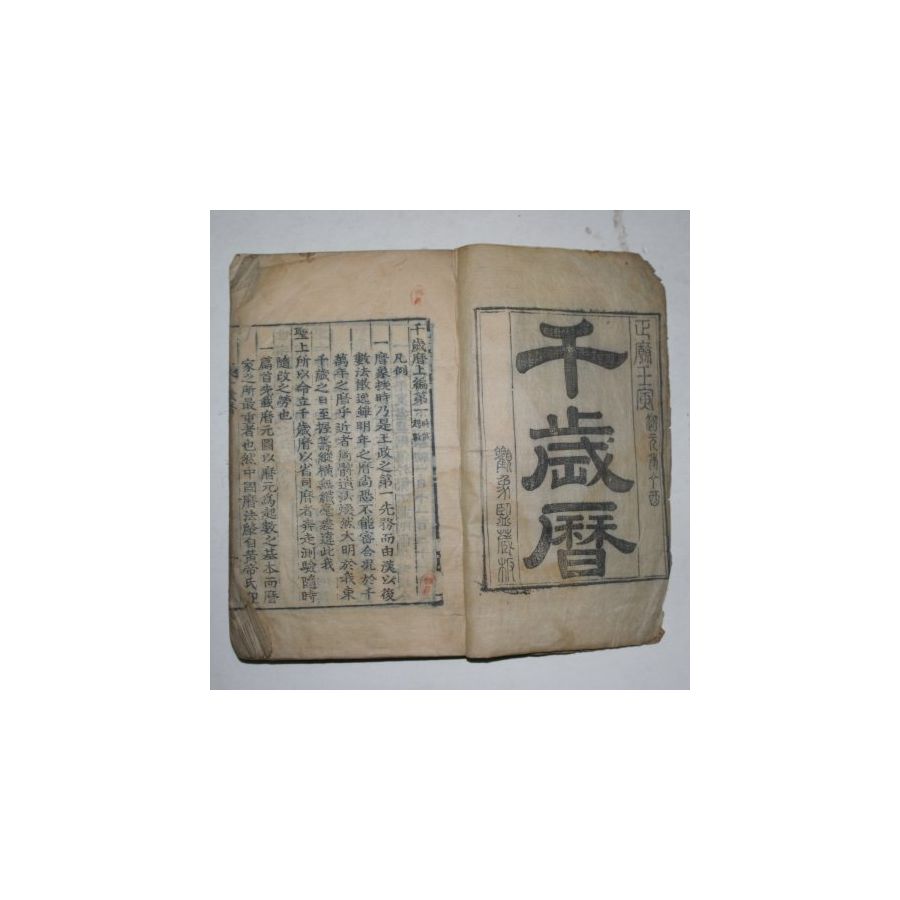 正廟壬寅
千歲曆
觀象監藏板
千歲曆上編第一
凡例
一曆象授時乃是王政之第一先務而由漢以後
數法散逸雖明年之曆尚恐不能審合況於千
萬年之曆乎近者法渙然大明於我東
千歲之日至握籌縱橫無纖毫差違此我
聖上所以命立千歲曆以省司曆者奔走測驗隨時
隨改之勞也
一篇首先載曆元圖以曆元爲起數之基本而曆
家之所最重者也然中國曆法肇自黃帝氏